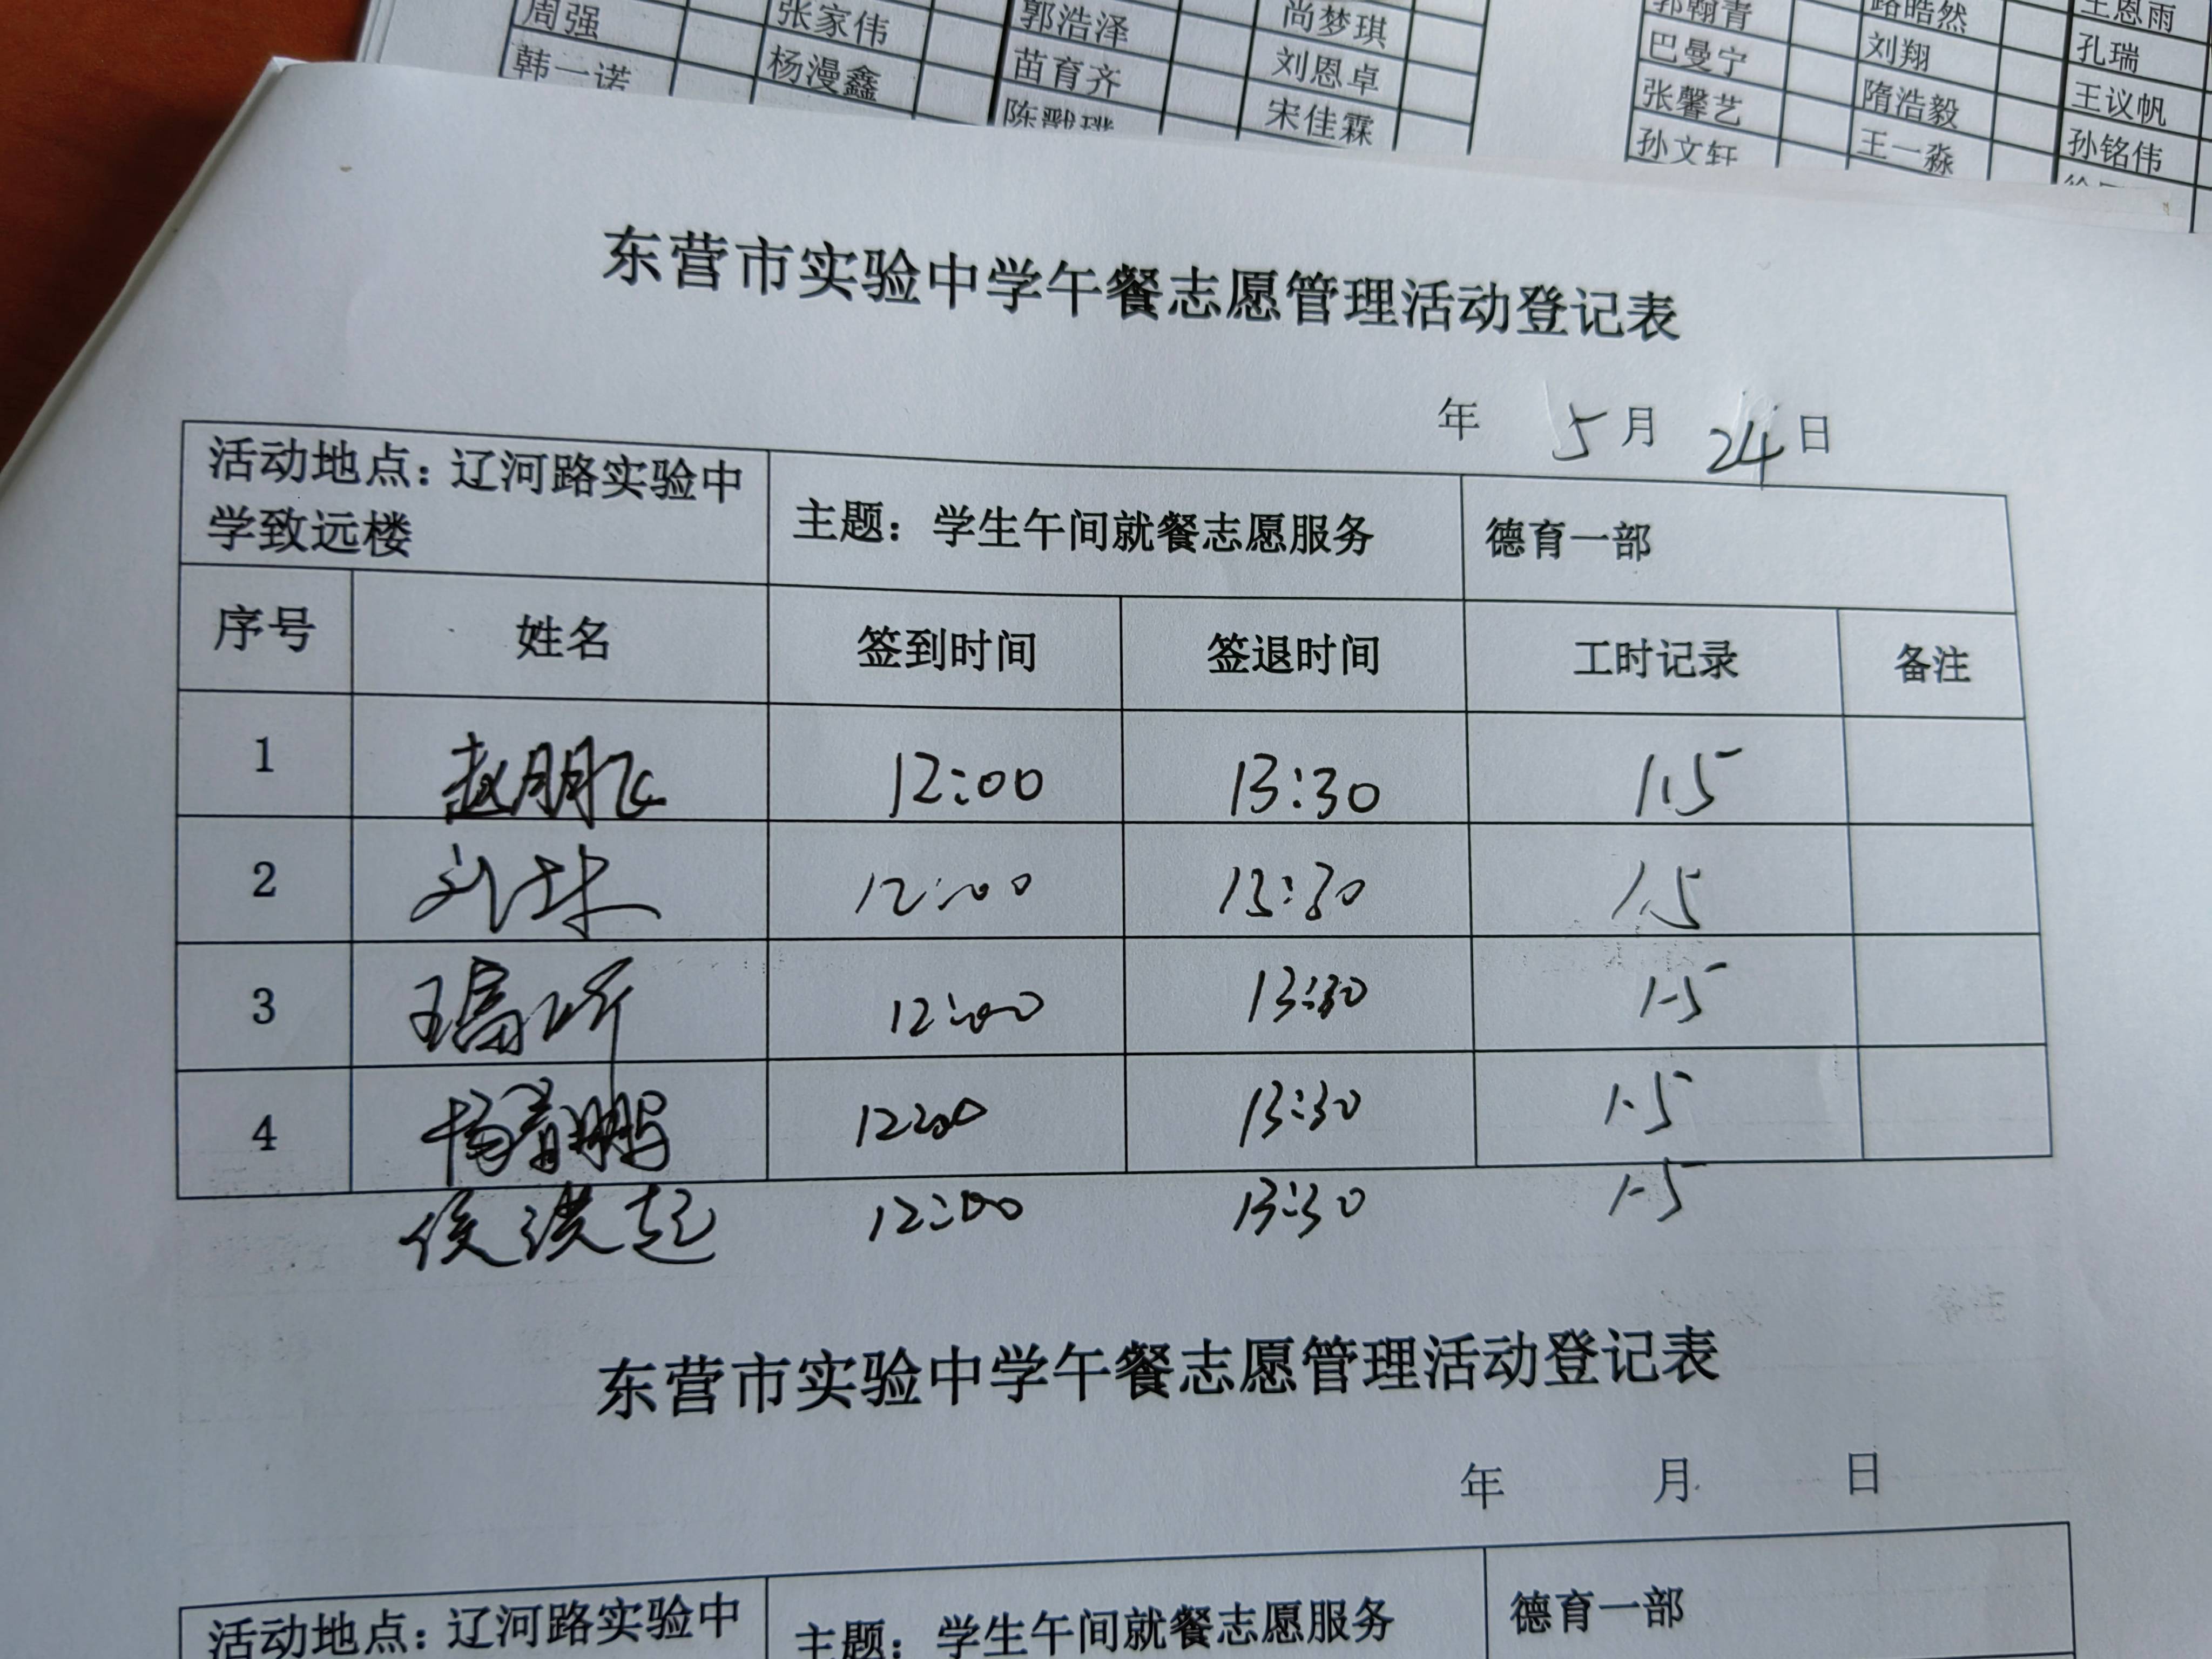 周强 张家伟 郭浩泽 尚梦琪 郭翰青 路晧然 王恩雨
韩一诺 杨漫鑫 苗育齐 刘恩卓 巴曼宁 刘翔 孔瑞
宋佳霖 张馨艺 隋浩毅 王议帆
孙文轩 王一淼 孙铭伟
东营市实验中学午餐志愿管理活动登记表
年 5月 24日
活动地点：辽河路实验中
学致远楼
主题：学生午间就餐志愿服务
德育一部
序号 姓名 签到时间 签退时间 工时记录 备注
1 赵朋飞 12:00 13:30 1.5
2 刘 12:00 13:30 1.5
3 王 12:00 13:30 1.5
4 杨 鹏 12:00 13:30 1.5
侯洪起 12:00 13:30 1.5
东营市实验中学午餐志愿管理活动登记表
年 月 日
活动地点：辽河路实验中
主题：学生午间就餐志愿服务
德育一部